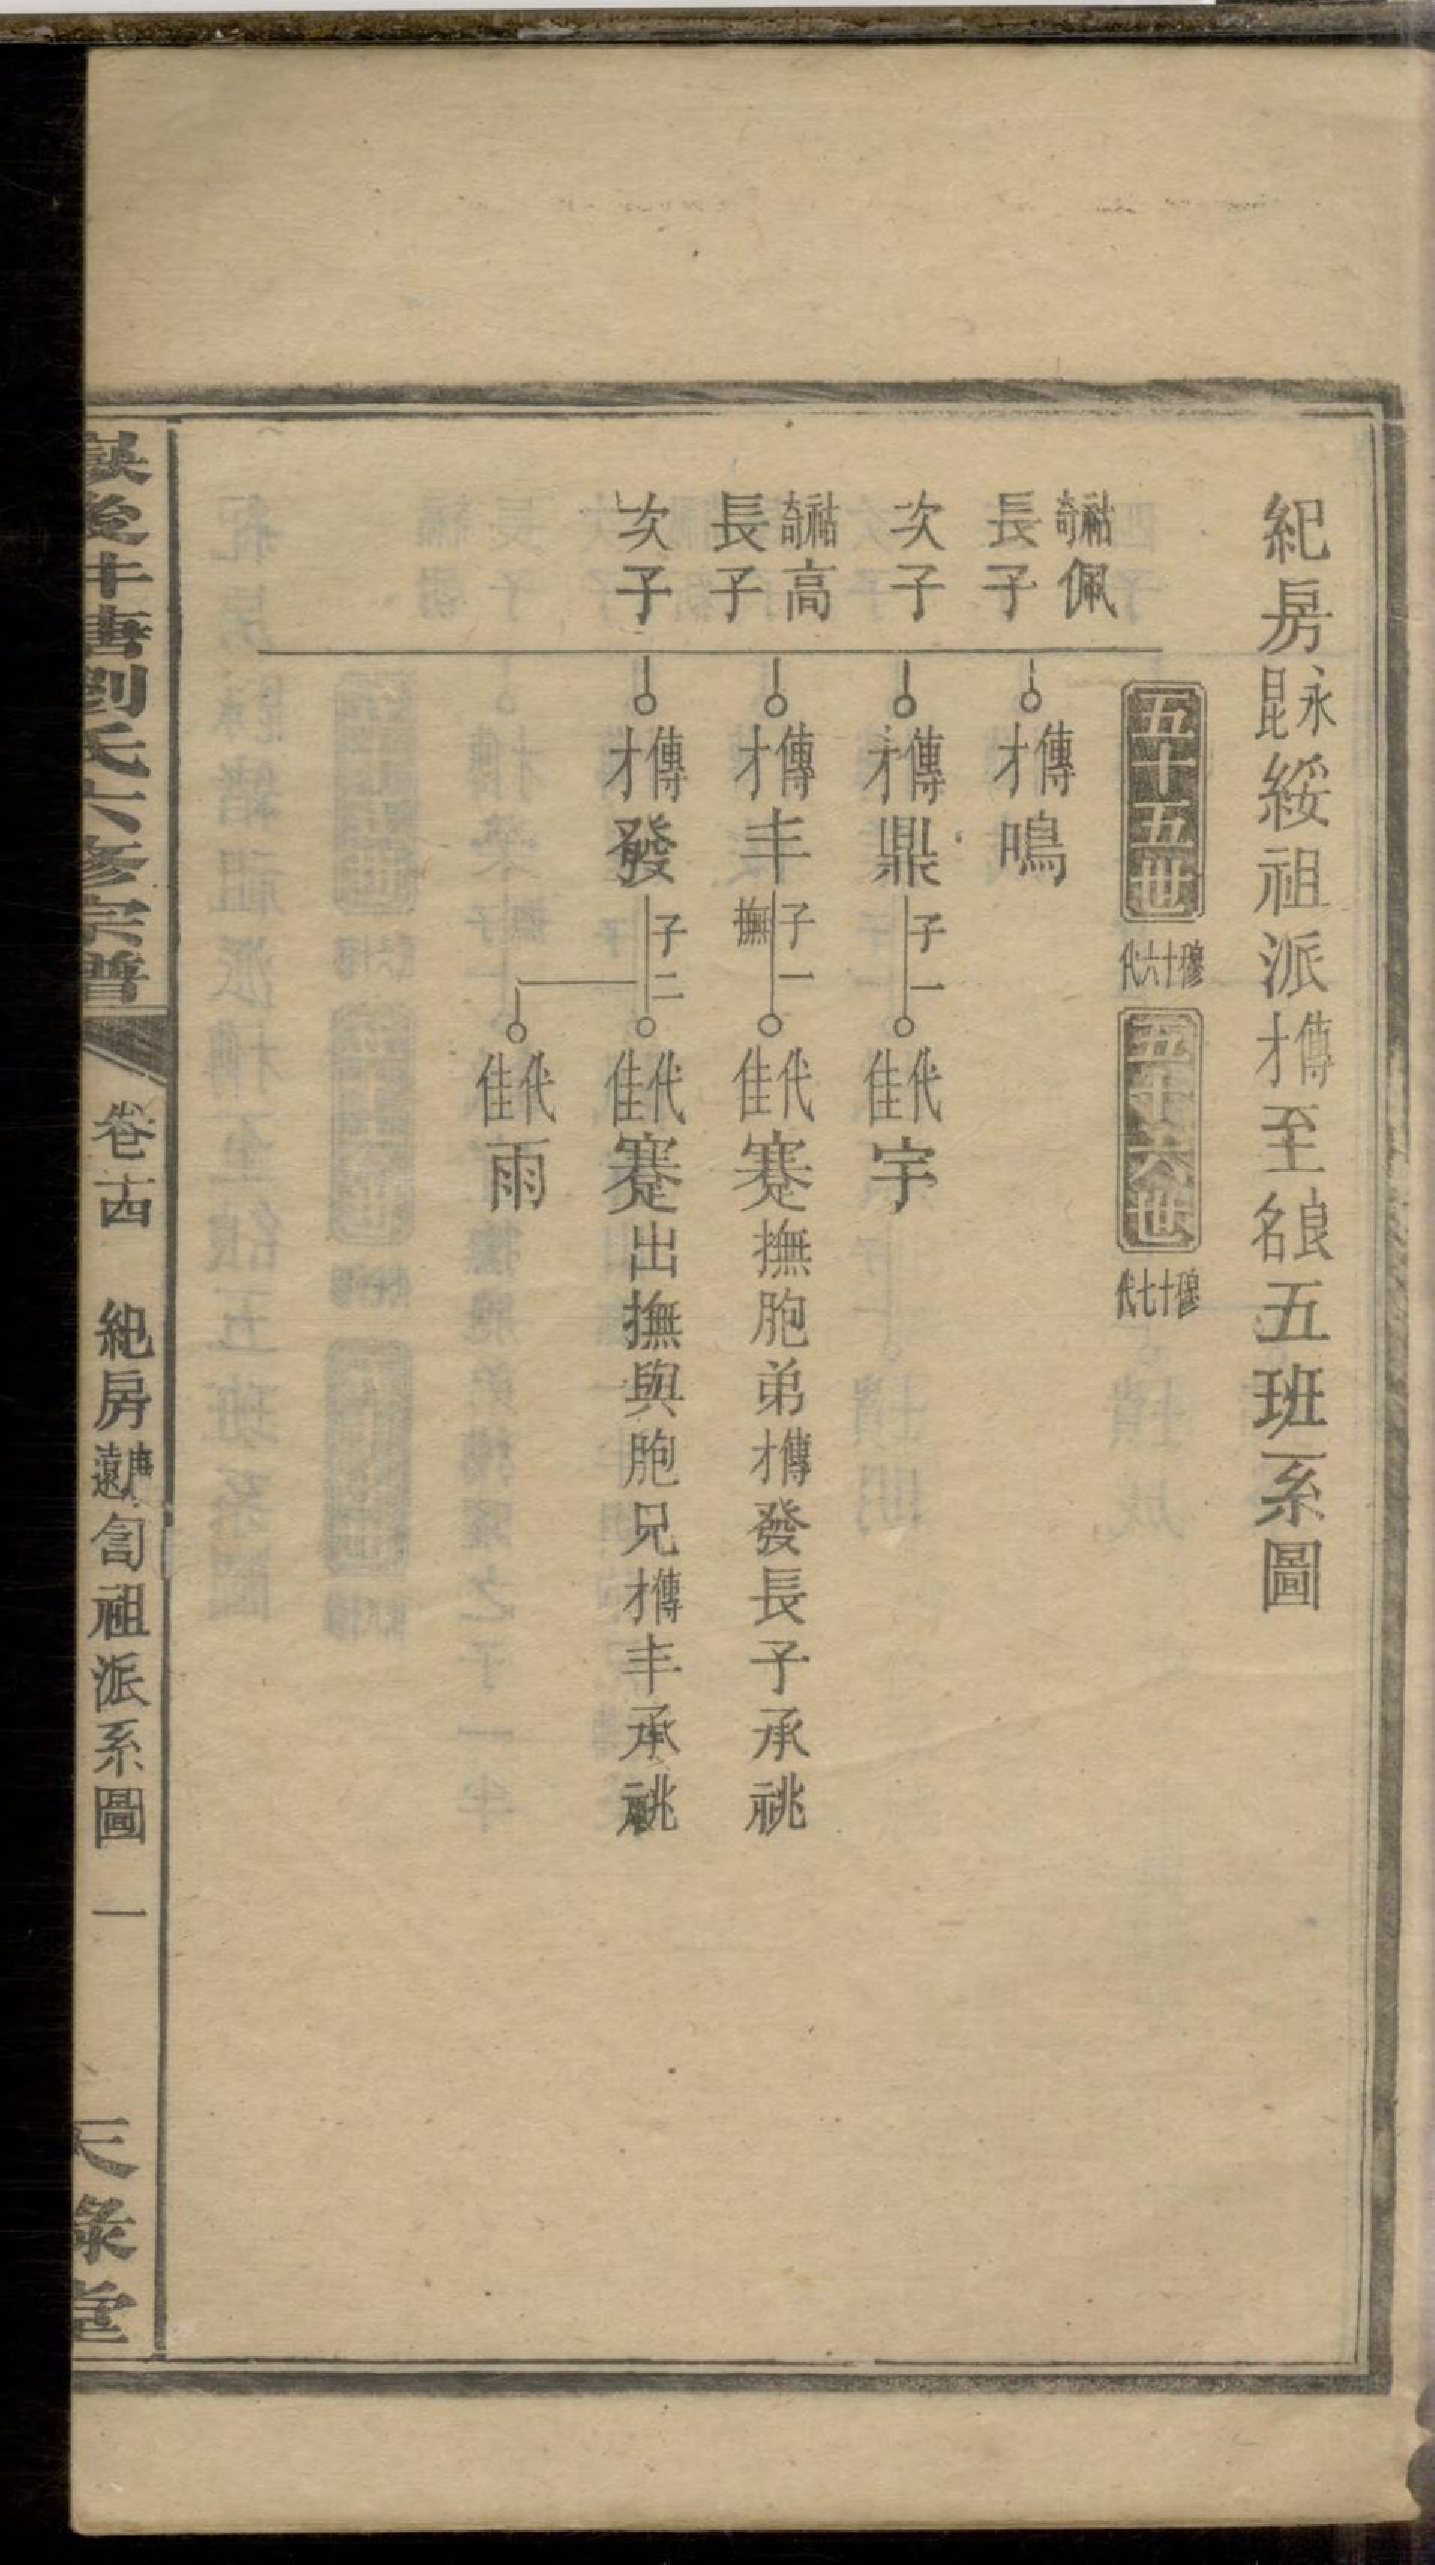 紀房永昆綏祖派傳才至良名五班系圖
五十五世 穆十六代
五十六世 穆十七代
祜奇佩
長子 傳才鳴
次子 傳才鼎 子一 代佳宇
祜奇高
長子 傳才丰 子一 撫 代佳蹇撫胞弟傳才發長子承祧
次子 傳才發 子二 代佳蹇出撫與胞兄傳才丰承祧
代佳雨
後牛唐劉氏六修宗譜
卷十四
紀房 祖派系圖
一
天祿堂